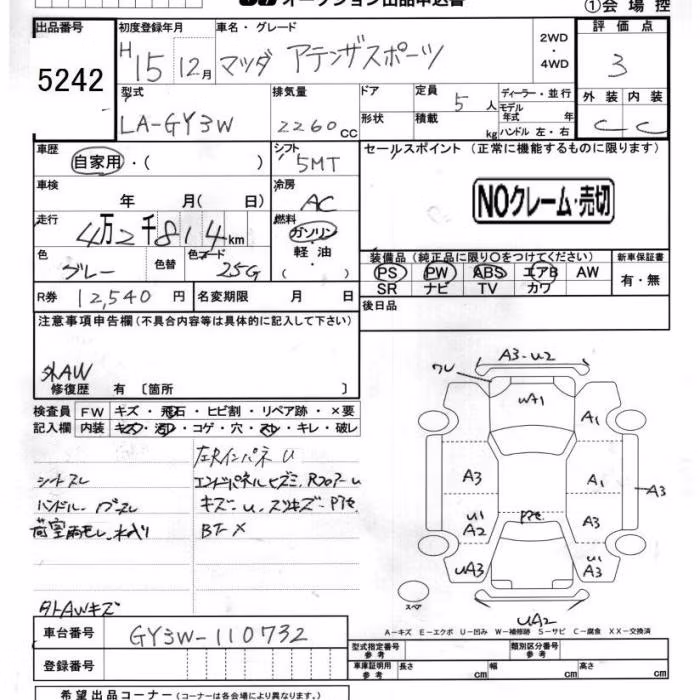 オークション出品申込書
①会場控
出品番号 初度登録年月 車名・グレード 評価点
5242 H 15 12月 マツダ アテンザスポーツ 2WD・4WD 3
型式 排気量 ドア 定員 ディーラー・並行 外装 内装
LA-GY3W 2260cc 5人 モデル年式 年 C C
形状 積載 kg ハンドル 左・右
車歴 シフト セールスポイント (正常に機能するものに限ります)
自家用・( ) 5MT
車検 冷房
年 月( 日) AC NOクレーム・売切
走行 燃料
4万2千814km ガソリン
軽油
・( )
色 色替 色コード 装備品(純正品に限り○をつけてください) 新車保証書
グレー 25G PS PW ABS エアB AW 有・無
SR ナビ TV カワ
R券 12,540円 名変期限 月 日 後日品
注意事項申告欄(不具合内容等は具体的に記入して下さい)
外AW
修復歴 有 〔箇所 〕
ワレ A3-U2
検査員 FW キズ・飛石・ヒビ割・リペア跡・×要
記入欄 内装 キズ・汚れ・コゲ・穴・スレ・キレ・破レ
UA1
A1
左Rインパネ U
シートスレ エンドパネルヒズミ、RフロアーU
A3 A1 A3
ハンドル・ノブスレ キズ・U、スリキズ・Pアセ
荷室雨モレ、水入り BT×
U1 A2 Pアセ A3
UA3 U1 A3
外AWキズ
スペア
UA2
A−キズ E−エクボ U−凹み W−補修跡 S−サビ C−腐食 XX−交換済
車台番号 GY3W-110732
型式指定番号 参考 類別区分番号 参考
登録番号 車庫証明用 参考 長さ cm 幅 cm 高さ cm
希望出品コーナー (コーナーは各会場により異なります。)